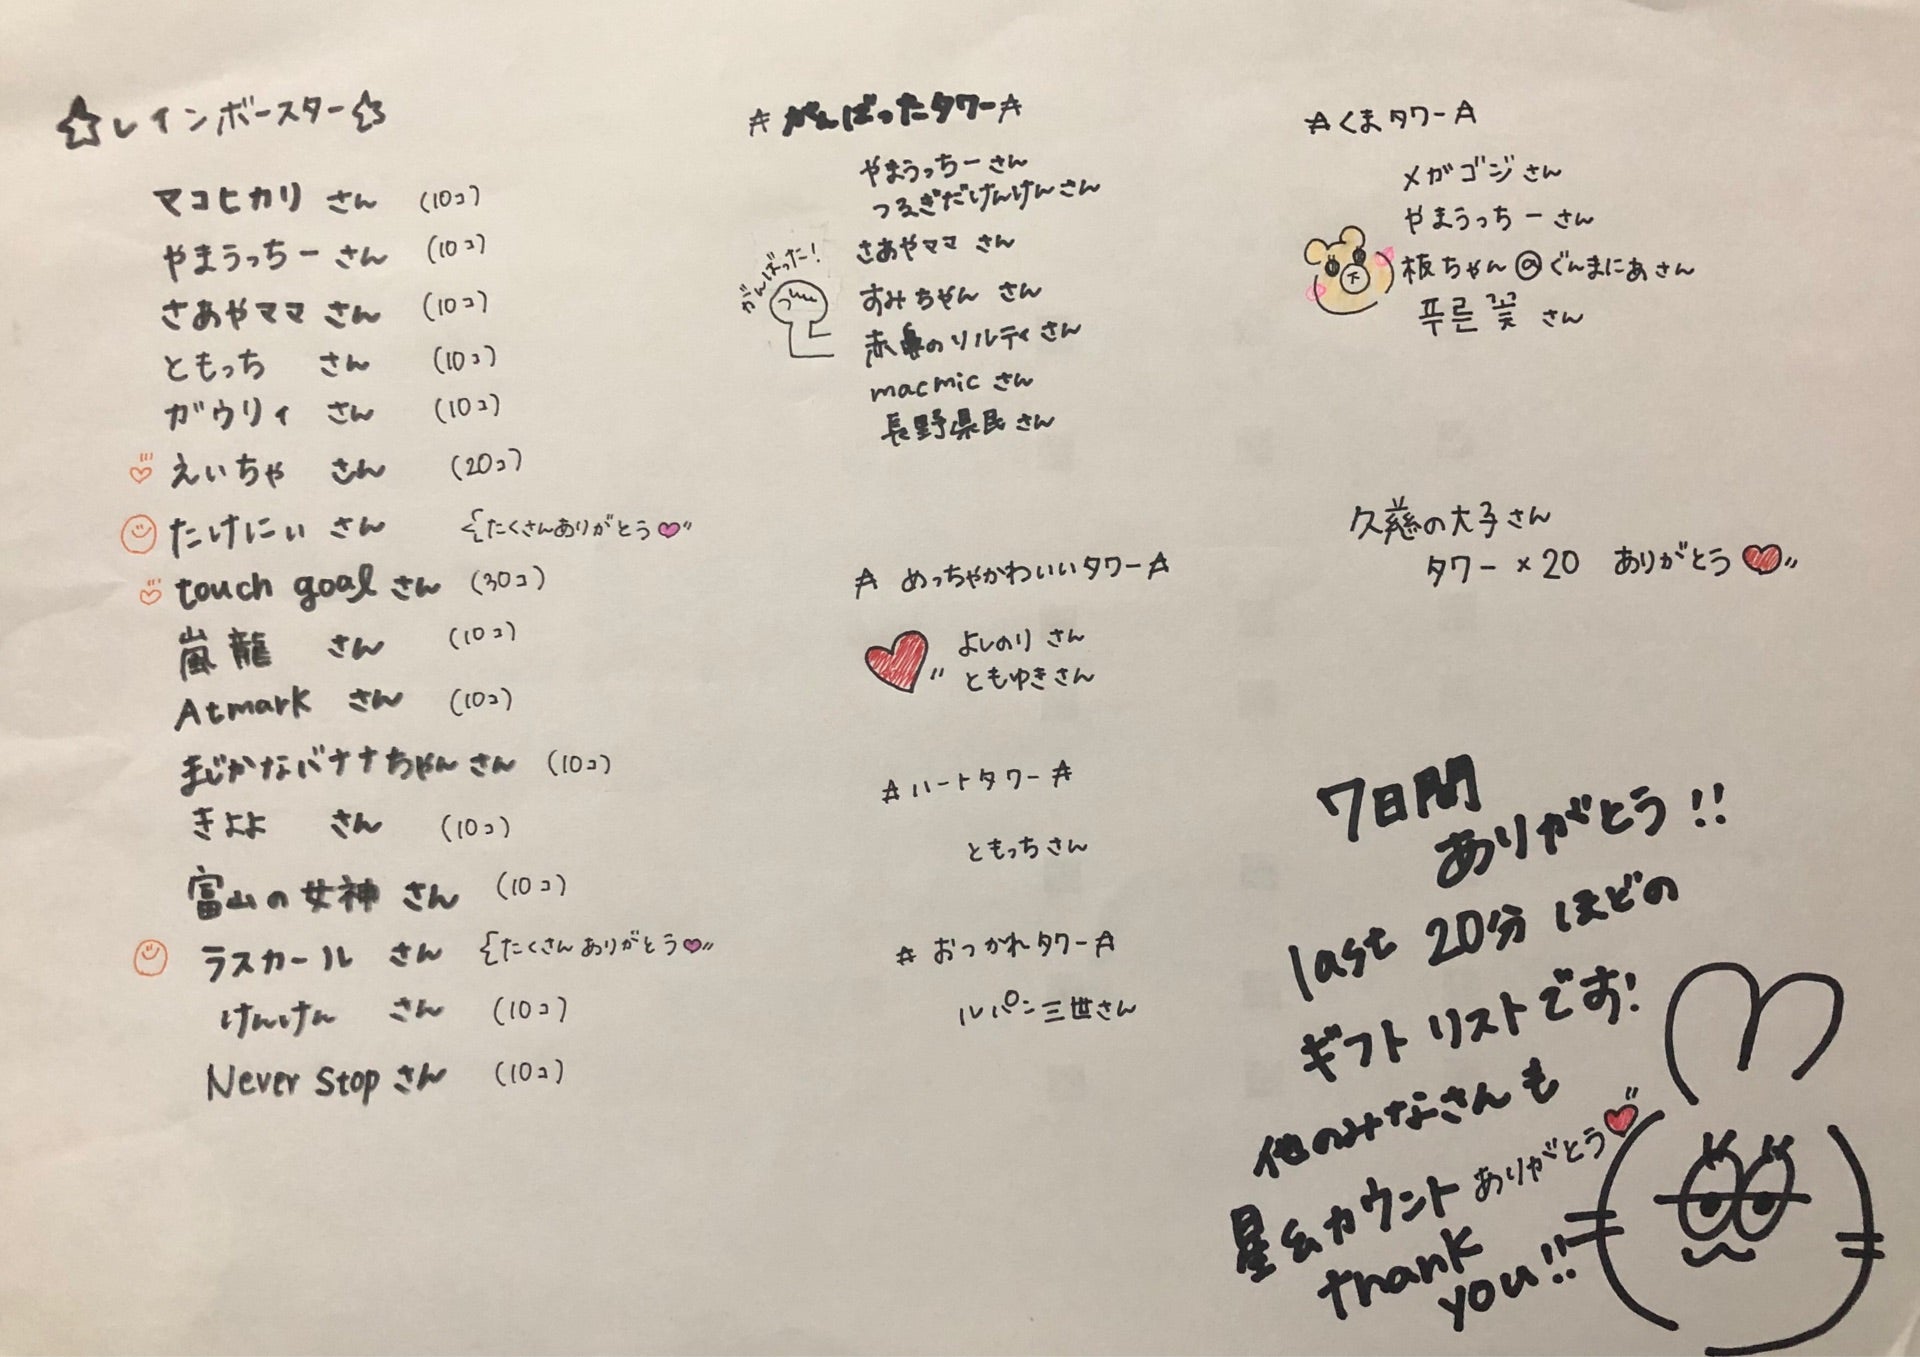 ☆レインボースター☆
マコヒカリ さん (10コ)
やまうっちー さん (10コ)
さあやママ さん (10コ)
ともっち さん (10コ)
ガウリィ さん (10コ)
えいちゃ さん (20コ)
たけにぃ さん {たくさんありがとう
touch goal さん (30コ)
嵐龍 さん (10コ)
Atmark さん (10コ)
まじかなバナナちゃん さん (10コ)
きよよ さん (10コ)
富山の女神 さん (10コ)
ラスカール さん {たくさんありがとう
けんけん さん (10コ)
Never Stop さん (10コ)
☆がんばったタワー☆
やまうっちーさん
つるぎだけんけんさん
さあやママ さん
すみちゃん さん
赤鼻のソルティさん
macmic さん
長野県民さん
がんばった!
☆めっちゃかわいいタワー☆
よしのり さん
ともゆきさん
☆ハートタワー☆
ともっちさん
☆おつかれタワー☆
ルパン三世さん
☆くまタワー☆
メガゴジさん
やまうっちーさん
板ちゃん@ぐんまにあさん
푸른 꽃 さん
久慈の大子さん
タワー×20 ありがとう
7日間
ありがとう!!
last 20分ほどの
ギフトリストです!
他のみなさんも
星&カウントありがとう
thank
you!!